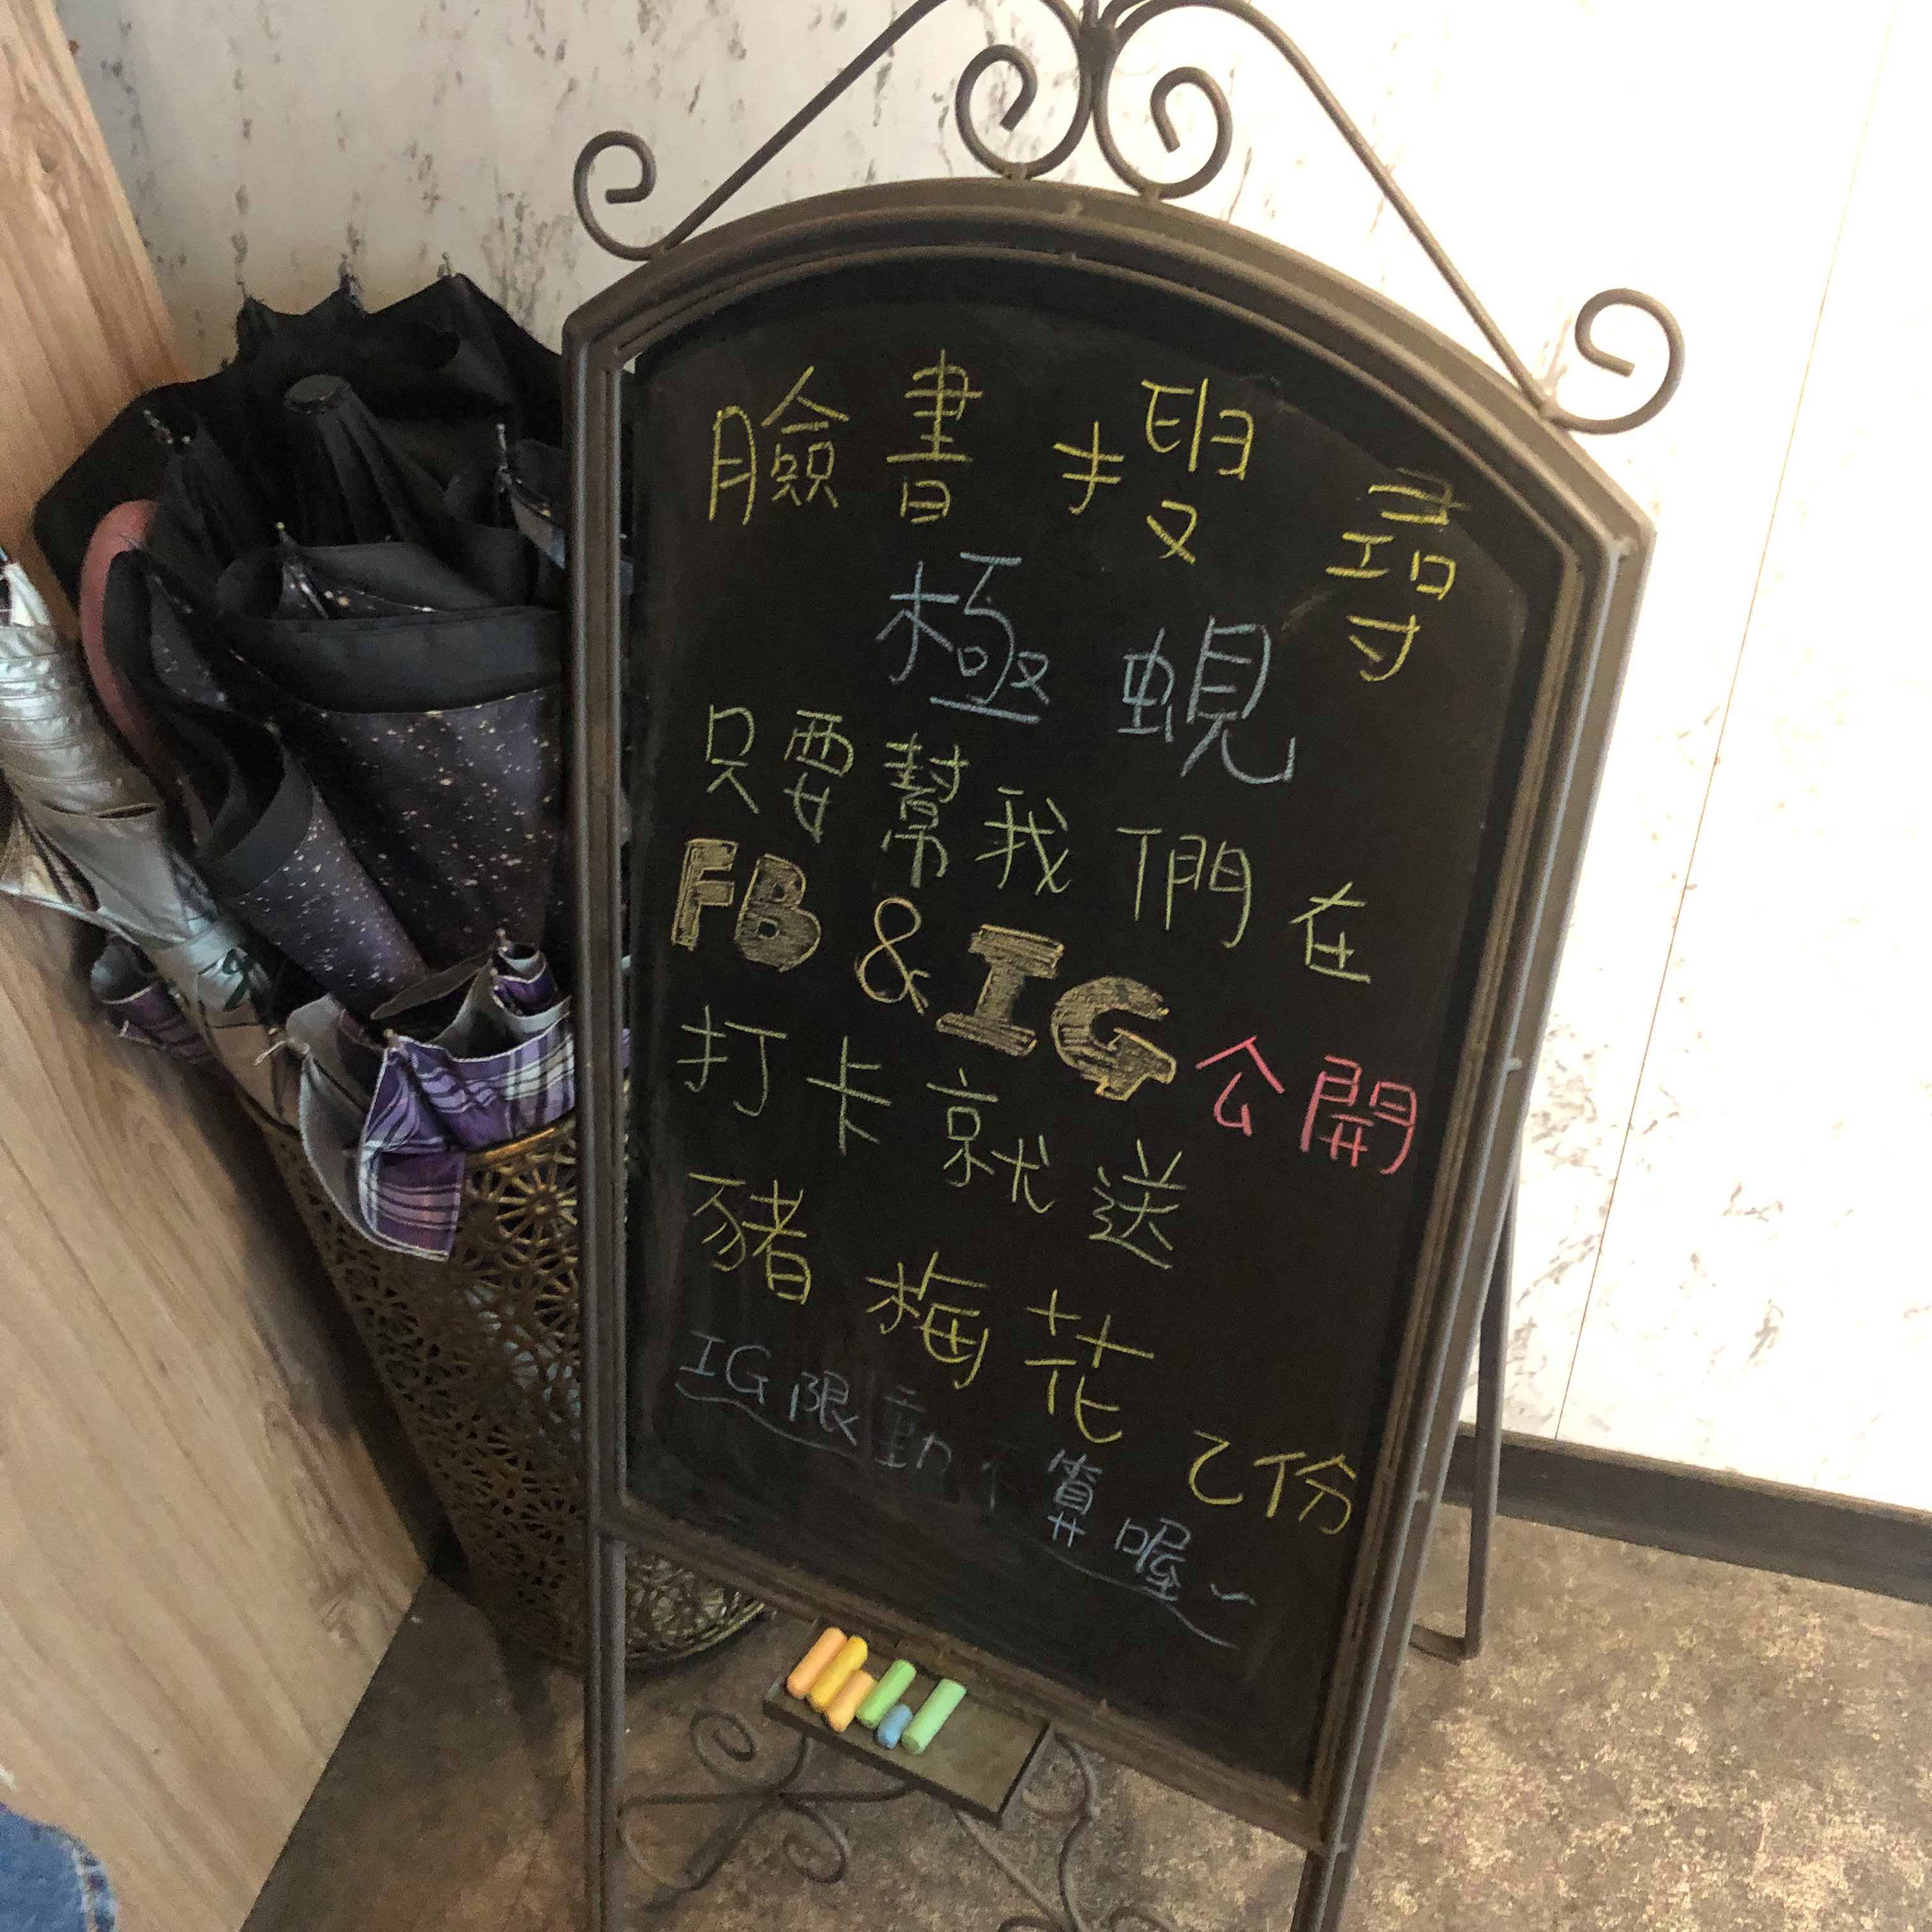 臉書搜尋
極蜆
只要幫我們在
FB&IG公開
打卡就送
豬梅花乙份
IG限動不算喔~